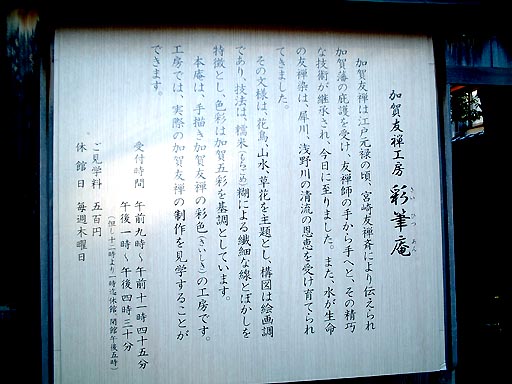 加賀友禅工房 彩筆庵
さい ひつ あん
加賀友禅は江戸元禄の頃、宮崎友禅斉により伝えられ
加賀藩の庇護を受け、友禅師の手から手へと、その精巧
な技術が継承され、今日に至りました。また、水が生命
の友禅染は、犀川、浅野川の清流の恩恵を受け育てられ
てきました。
その文様は、花鳥、山水、草花を主題とし、構図は絵画調
であり、技法は、糯米(もちごめ)糊による繊細な線とぼかしを
特徴とし、色彩は加賀五彩を基調としています。
本庵は、手描き加賀友禅の彩色(さいしき)の工房です。
工房では、実際の加賀友禅の制作を見学することが
できます。
受付時間 午前九時〜午前十一時四十五分
午後一時〜午後四時三十分
(但し十二時より一時迄休館 閉館午後五時)
ご見学料 五百円
休館日 毎週木曜日